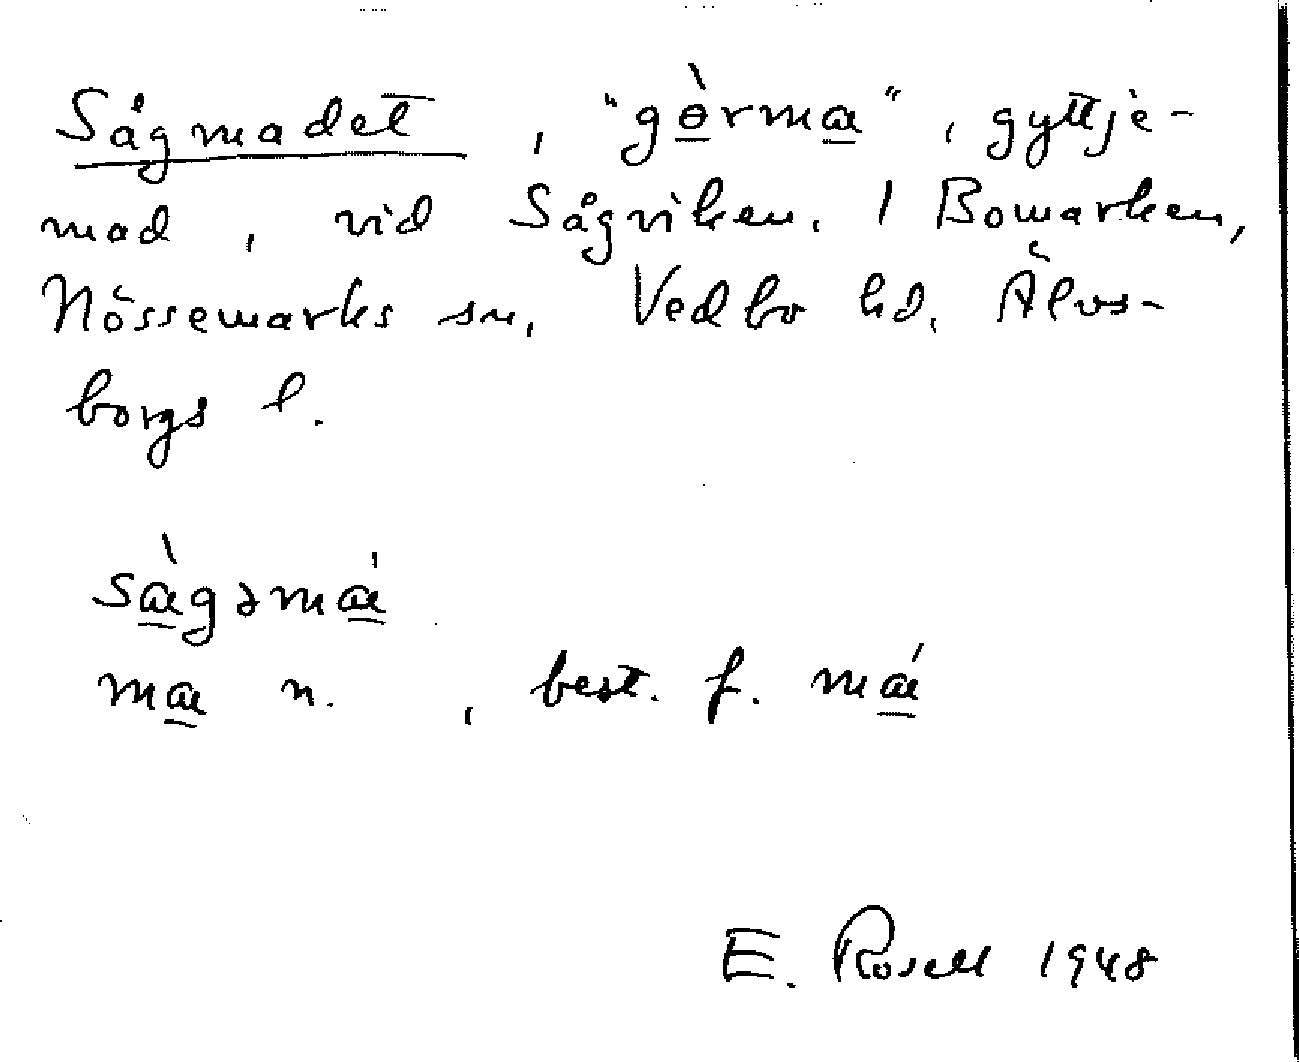 Sågmadet, "gø̀rmæ", gyttje-
mad, vid Sågviken. / Bowarken,
Nössemarks sn, Vedbo hd. Älvs-
borgs l.
sæ̀gəmæ̍
mæ n., best. f. mǽ
E. Rosell 1948